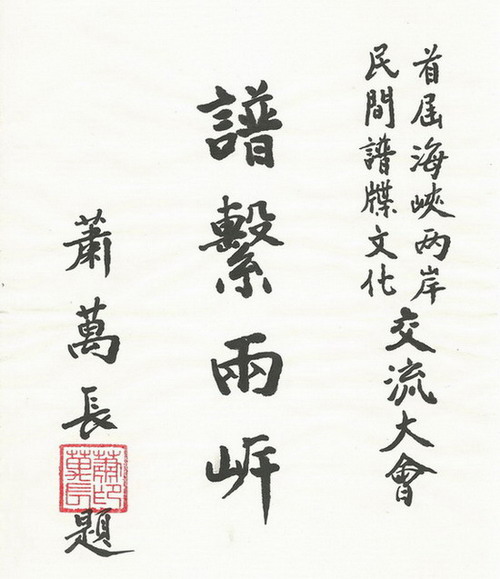 首屆海峽两岸
民間譜牒文化
交流大會
譜繫兩岸
蕭萬長題
蕭印萬長